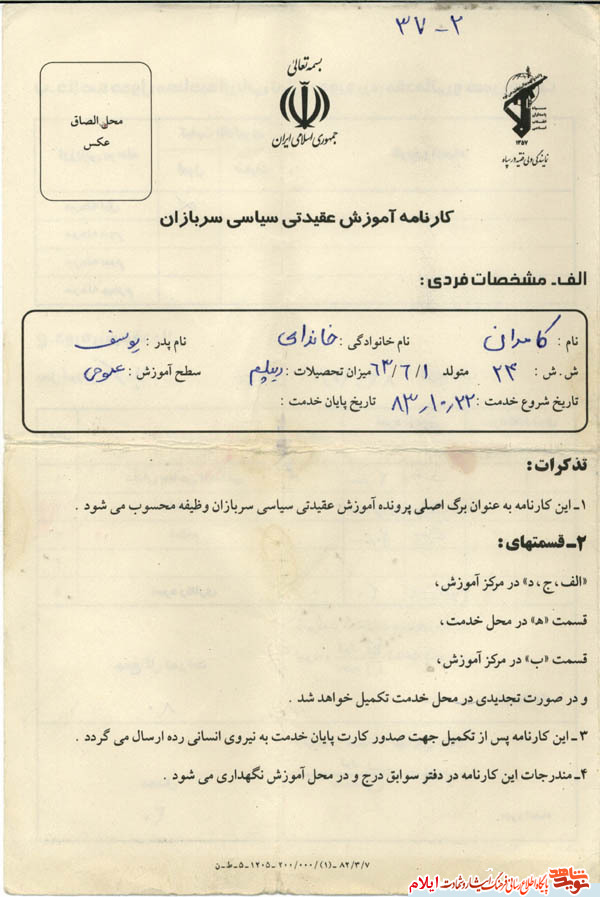 ۳۷-۲
بسمه تعالی
جمهوری اسلامی ایران
محل الصاق
عکس
سپاه
پاسداران
انقلاب
اسلامی
۱۳۵۷
نمایندگی ولی فقیه در سپاه
کارنامه آموزش عقیدتی سیاسی سربازان
الف - مشخصات فردی :
نام : کامران نام خانوادگی : خاندایی نام پدر : یوسف
ش . ش : ۲۴ متولد ۶۳/۶/۱ میزان تحصیلات : دیپلم سطح آموزش : عمومی
تاریخ شروع خدمت : ۸۳،۱۰،۲۲ تاریخ پایان خدمت :
تذکرات :
۱ - این کارنامه به عنوان برگ اصلی پرونده آموزش عقیدتی سیاسی سربازان وظیفه محسوب می شود .
۲ - قسمتهای :
«الف ، ج ، د» در مرکز آموزش ،
قسمت «ه» در محل خدمت ،
قسمت «ب» در مرکز آموزش ،
و در صورت تجدیدی در محل خدمت تکمیل خواهد شد .
۳ - این کارنامه پس از تکمیل جهت صدور کارت پایان خدمت به نیروی انسانی رده ارسال می گردد .
۴ - مندرجات این کارنامه در دفتر سوابق درج و در محل آموزش نگهداری می شود .
۸۲/۳/۷ - (۱) / ۲۰۰/۰۰۰ - ۱۲۰۵ - ۵ - ط - ن
نوید شاهد پایگاه اطلاع رسانی فرهنگ ایثار و شهادت ایلام